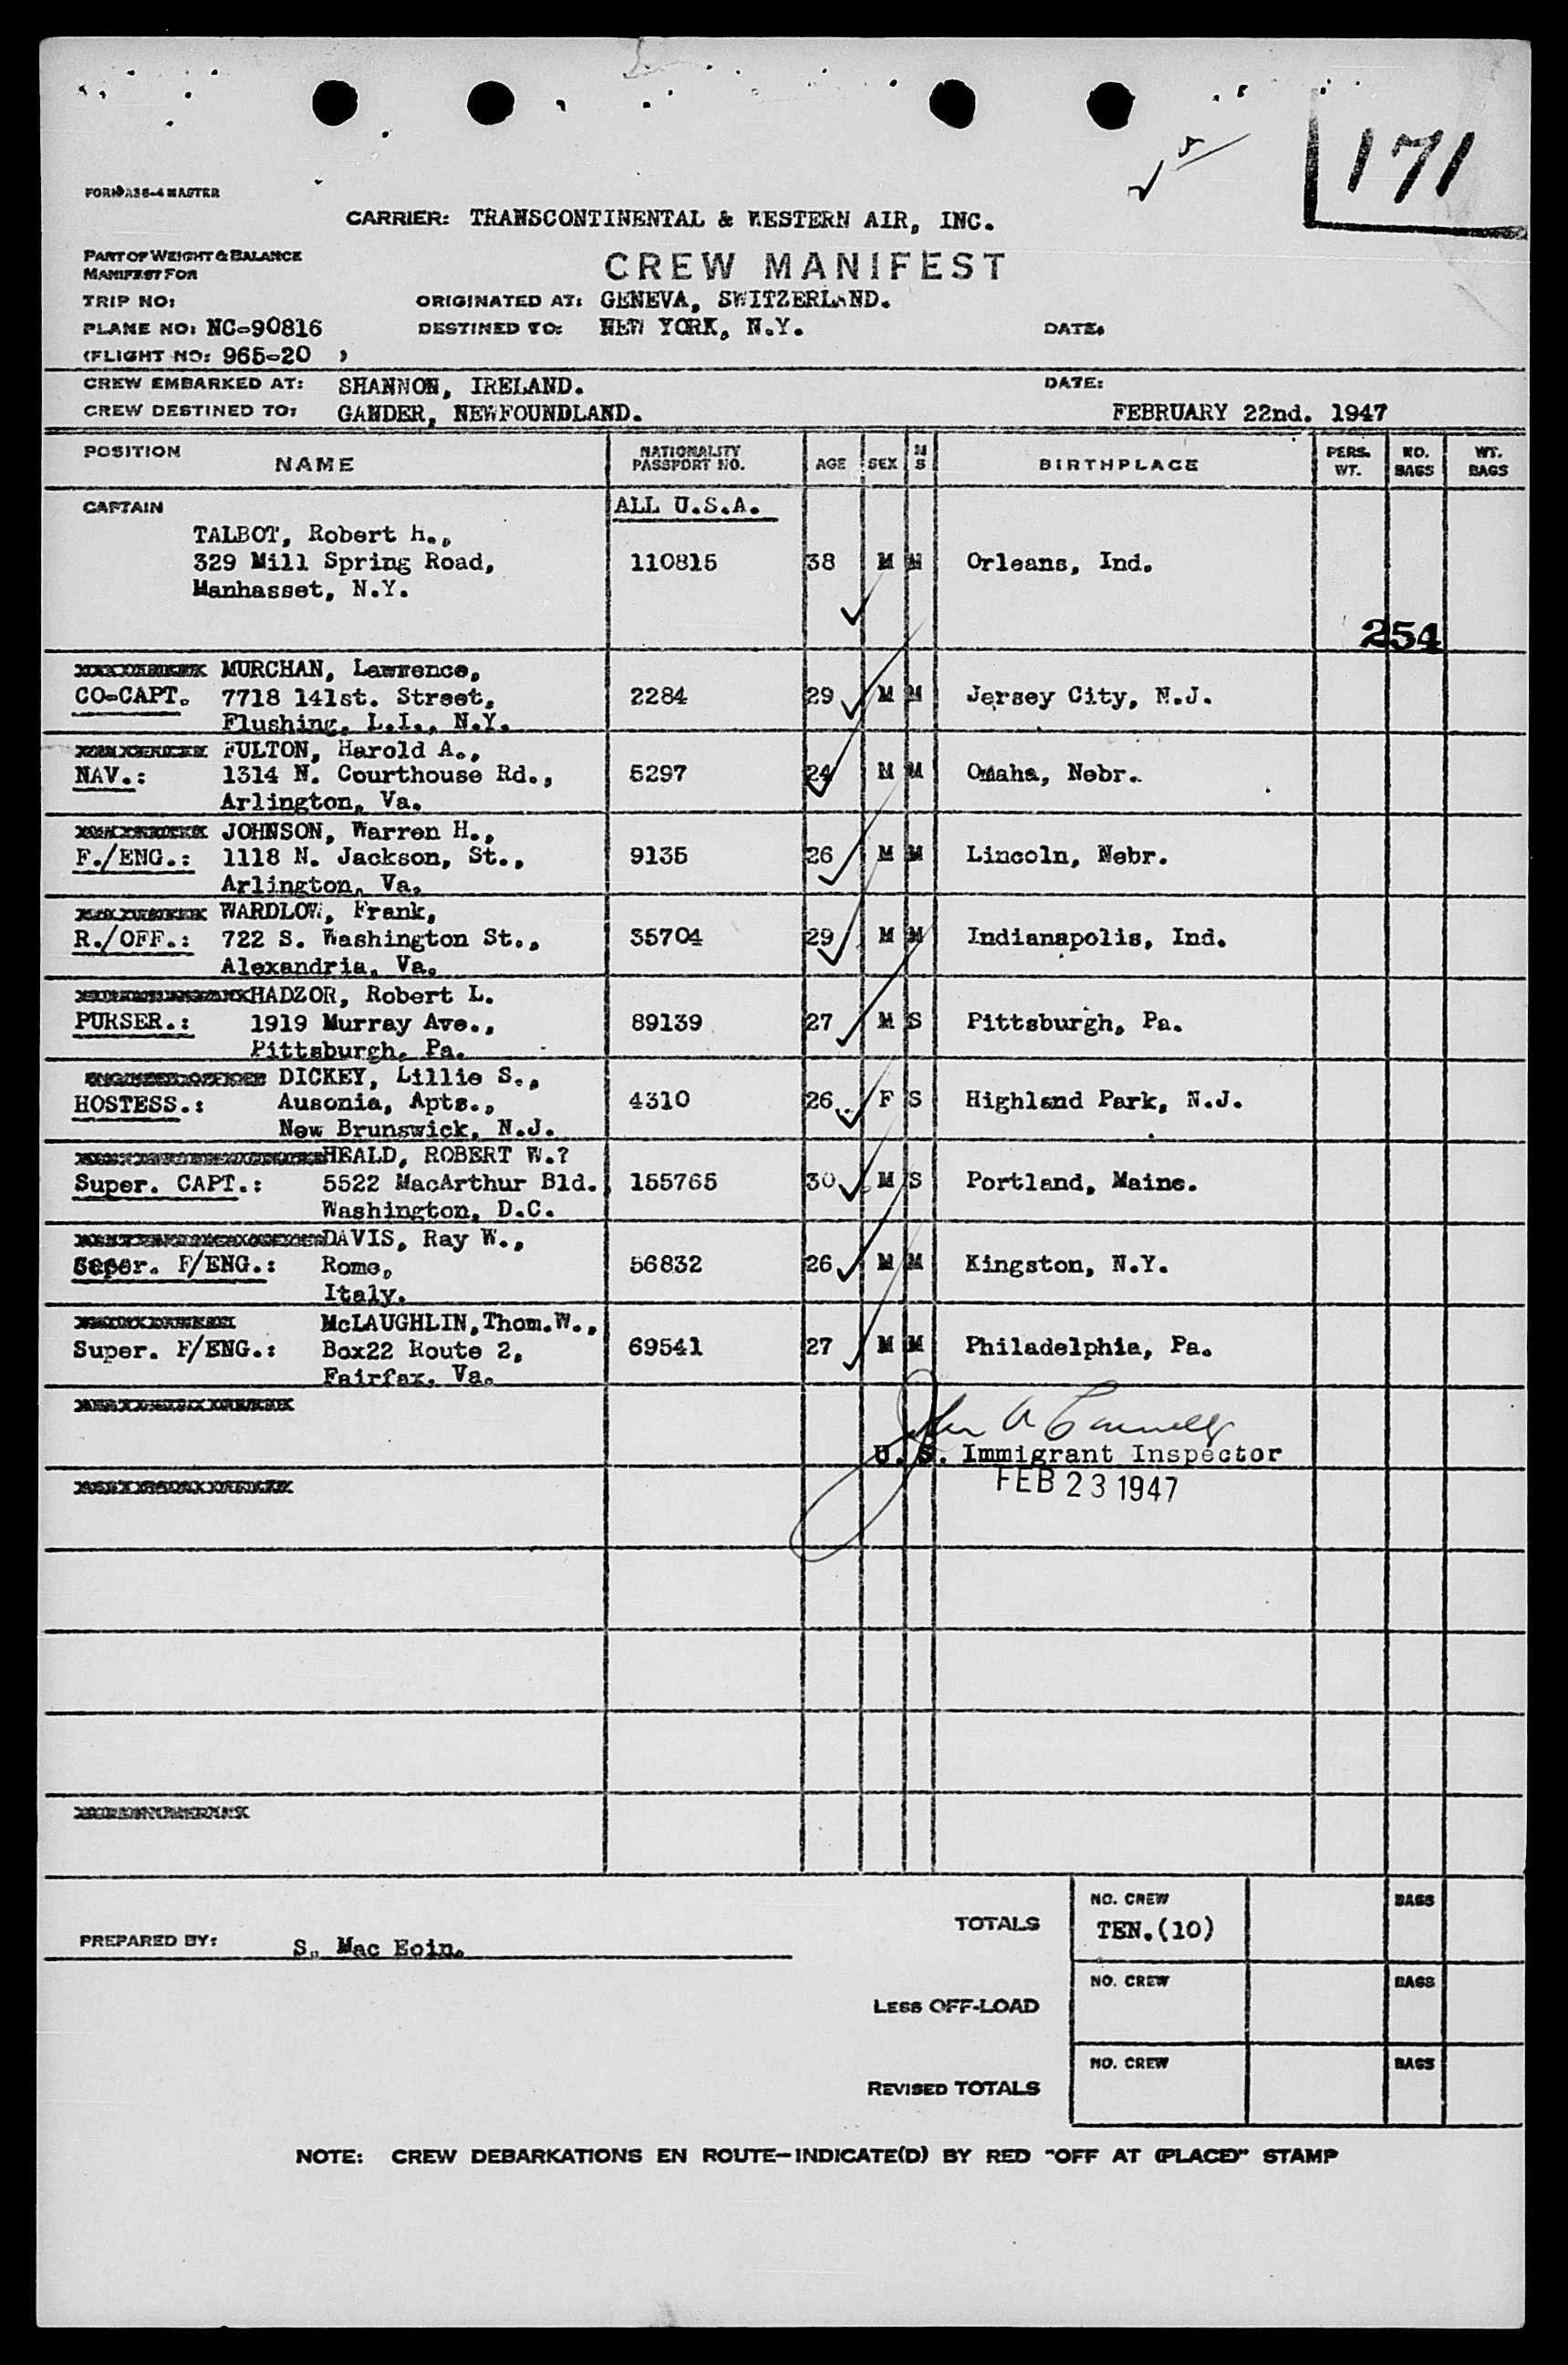 171
FORM A36-4 MASTER
CARRIER: TRANSCONTINENTAL & WESTERN AIR, INC.
PART OF WEIGHT & BALANCE
MANIFEST FOR
CREW MANIFEST
TRIP NO:
ORIGINATED AT: GENEVA, SWITZERLAND.
PLANE NO: NC-90816
DESTINED TO: NEW YORK, N.Y.
DATE.
(FLIGHT NO: 965-20 )
CREW EMBARKED AT: SHANNON, IRELAND.
DATE:
CREW DESTINED TO: GANDER, NEWFOUNDLAND.
FEBRUARY 22nd. 1947
POSITION NAME NATIONALITY PASSPORT NO. AGE SEX M S BIRTHPLACE PERS. WT. NO. BAGS WT. BAGS
CAPTAIN ALL U.S.A.
TALBOT, Robert H.,
329 Mill Spring Road, 110815 38 M M Orleans, Ind.
Manhasset, N.Y.
254
MURCHAN, Lawrence,
CO-CAPT. 7718 141st. Street, 2284 29 M M Jersey City, N.J.
Flushing, L.I., N.Y.
FULTON, Harold A.,
NAV.: 1314 N. Courthouse Rd., 5297 24 M M Omaha, Nebr.
Arlington, Va.
JOHNSON, Warren H.,
F./ENG.: 1118 N. Jackson, St., 9135 26 M M Lincoln, Nebr.
Arlington, Va.
WARDLOW, Frank,
R./OFF.: 722 S. Washington St., 35704 29 M M Indianapolis, Ind.
Alexandria, Va.
HADZOR, Robert L.
PURSER.: 1919 Murray Ave., 89139 27 M S Pittsburgh, Pa.
Pittsburgh, Pa.
DICKEY, Lillie S.,
HOSTESS.: Ausonia, Apts., 4310 26 F S Highland Park, N.J.
New Brunswick, N.J.
HEALD, ROBERT W.?
Super. CAPT.: 5522 MacArthur Bld. 155765 30 M S Portland, Maine.
Washington, D.C.
DAVIS, Ray W.,
Super. F/ENG.: Rome, 56832 26 M M Kingston, N.Y.
Italy.
McLAUGHLIN, Thom.W.,
Super. F/ENG.: Box22 Route 2, 69541 27 M M Philadelphia, Pa.
Fairfax, Va.
U. S. Immigrant Inspector
FEB 23 1947
TOTALS NO. CREW TEN.(10) BAGS
PREPARED BY: S. Mac Eoin.
LESS OFF-LOAD NO. CREW BAGS
REVISED TOTALS NO. CREW BAGS
NOTE: CREW DEBARKATIONS EN ROUTE-INDICATE(D) BY RED "OFF AT (PLACE)" STAMP